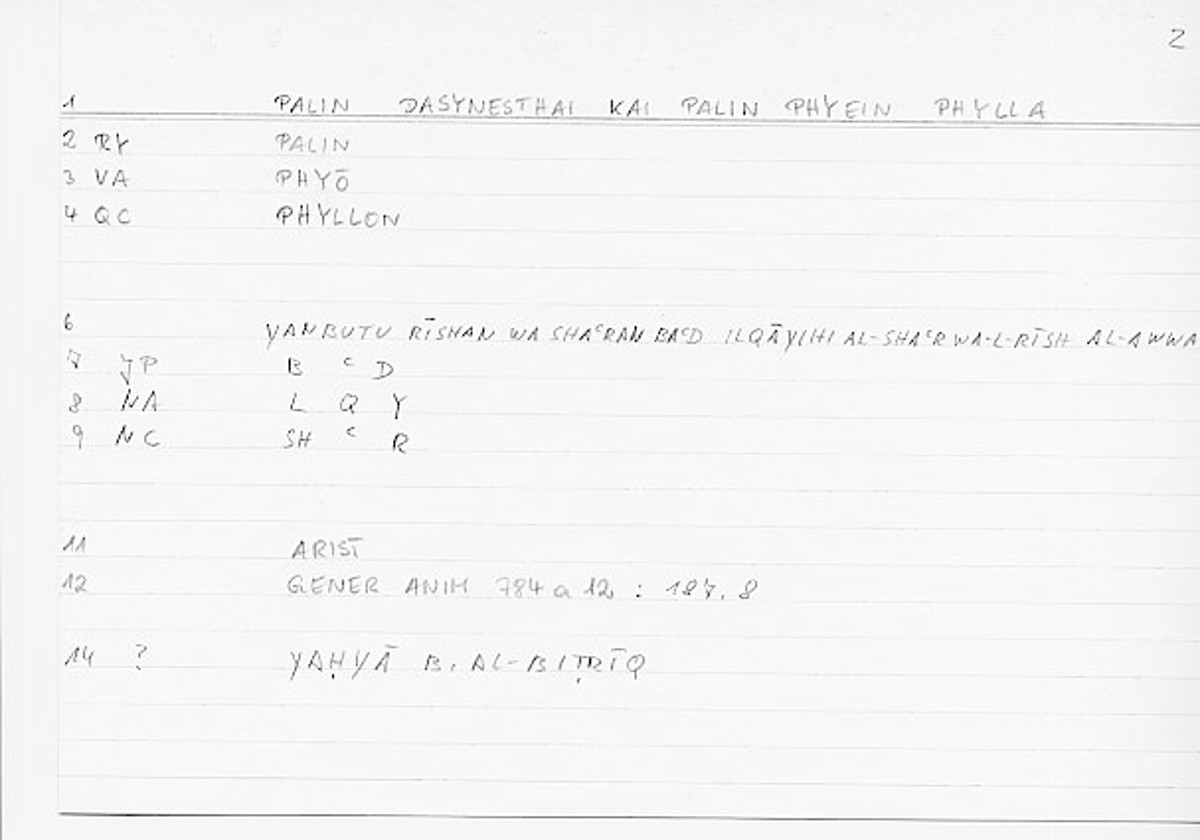 2
1 PALIN DASYNESTHAI KAI PALIN PHYEIN PHYLLA
2 RY PALIN
3 VA PHYŌ
4 QC PHYLLON
6 YANBUTU RĪSHAN WA SHAᶜRAN BAᶜD ILQĀYIHI AL-SHAᶜR WA-L-RĪSH AL-AWWA
7 JP B ᶜ D
8 NA L Q Y
9 NC SH ᶜ R
11 ARIST
12 GENER ANIM 784 a 12 : 187.8
14 ? YAḤYĀ B. AL-BIṬRĪQ